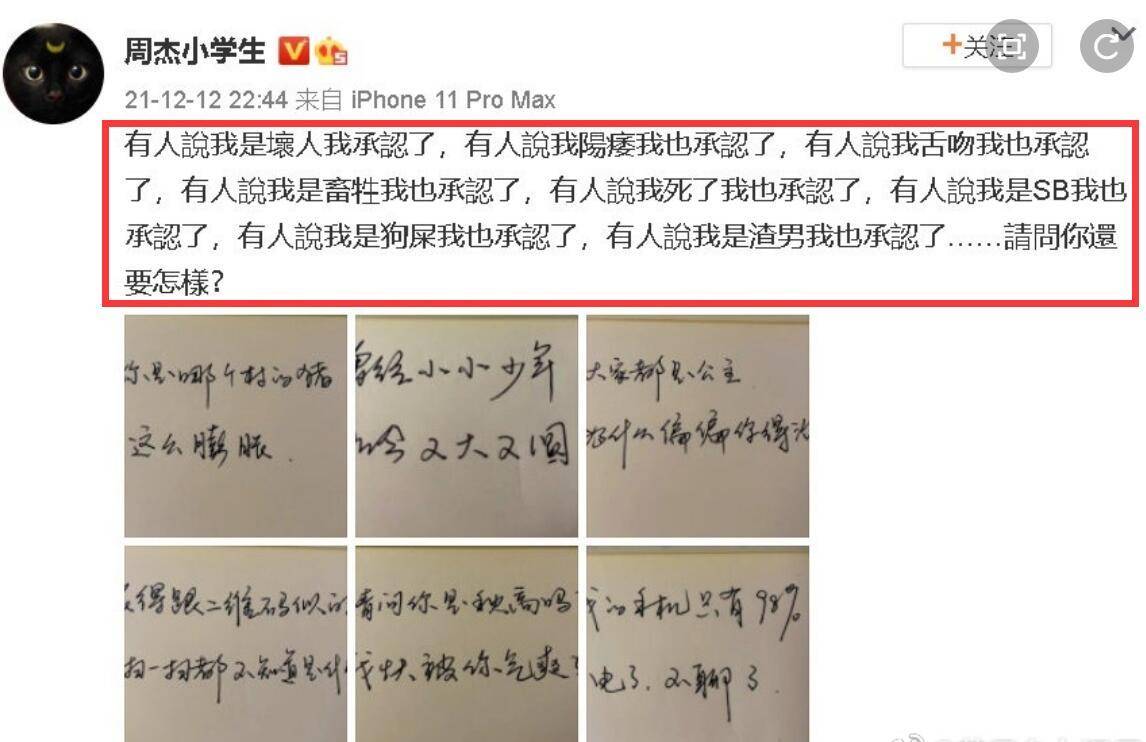 周杰小学生
+关注
21-12-12 22:44 来自 iPhone 11 Pro Max
有人說我是壞人我承認了，有人說我陽痿我也承認了，有人說我舌吻我也承認
了，有人說我是畜牲我也承認了，有人說我死了我也承認了，有人說我是SB我也
承認了，有人說我是狗屎我也承認了，有人說我是渣男我也承認了……請問你還
要怎樣？
你是哪个村的猪
这么膨胀.
曾经小小少年
脸又大又圆
大家都是公主
为什么偏偏你得
得跟二维码似的
扫一扫都不知道是什
请问你是秋高吗
我快被你气爽了
我的手机只有98%
电了.不聊了.